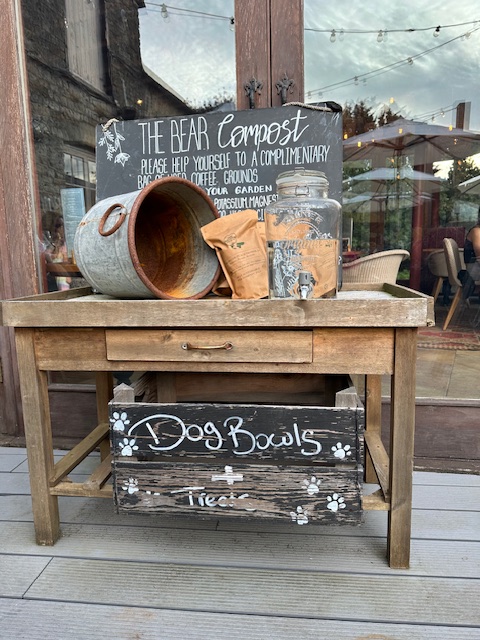 THE BEAR Compost
PLEASE HELP YOURSELF TO A COMPLIMENTARY
BAG OF USED COFFEE GROUNDS
YOUR GARDEN
POTASSIUM, MAGNES
Dog Bowls
+
Treats